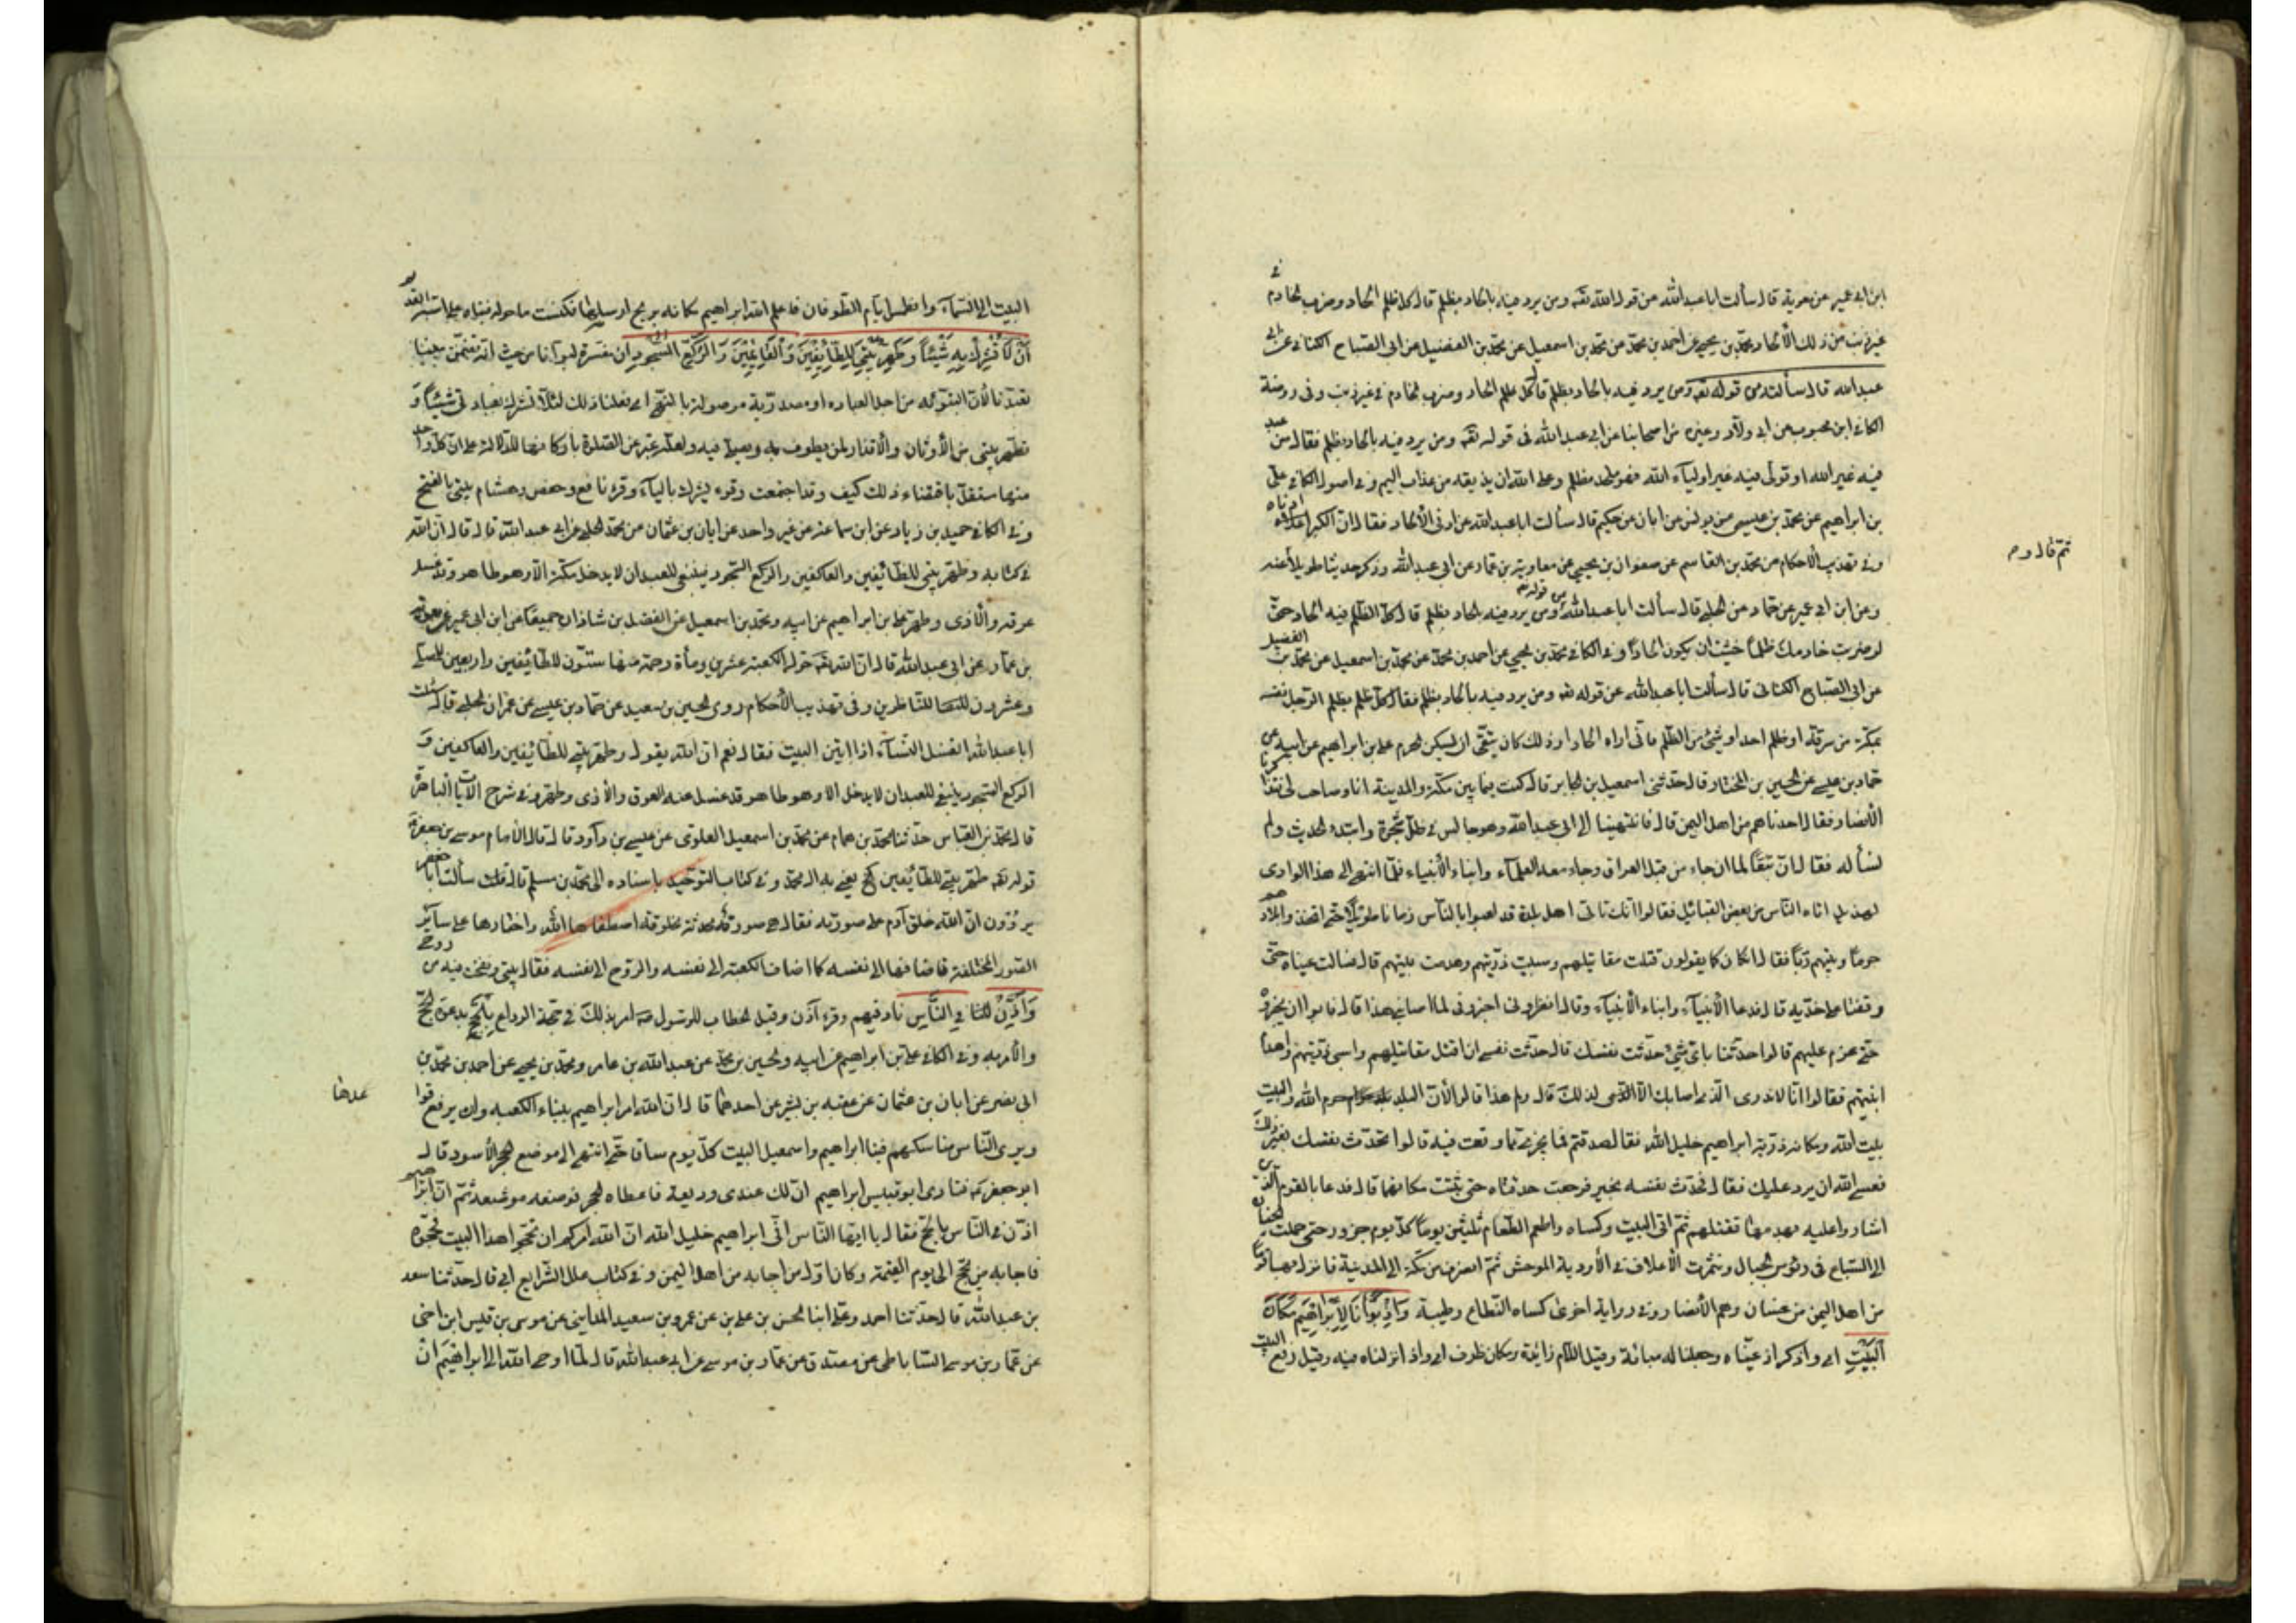 ابن ابى عمير عن معوية قال سألت ابا عبد الله عن قول الله تعه ومن يرد فيه بالحاد بظلم قال كل ظلم الحاد وضرب الخادم فى
غير ذنب من ذلك الألحاد ومحمد بن يحيى عن احمد بن محمد عن محمد بن اسمعيل عن محمد بن الفضيل عن ابى الصباح الكنانى عن ابى
عبدالله قال سألته عن قوله تعه ومن يرد فيه بالحاد بظلم قال كل ظلم الحاد وضرب الخادم فى غير ذنب وفى روضة
الكافى ابن محبوب عن ابى ولاد وغيره من اصحابنا عن ابى عبد الله فى قوله تعه ومن يرد فيه بالحاد بظلم فقال من عبد
فيه غير الله او تولى فيه غير اولياء الله فهو ملحد بظلم وعلى الله ان يذيقه من عذاب اليم وفى اصول الكافى على
بن ابراهيم عن محمد بن عيسى عن يونس عن ابان عن حكيم قال سألت ابا عبد الله عن ادنى الألحاد فقال ان الكبر ادناه
وفى تهذيب الأحكام عن محمد بن القاسم عن صفوان بن يحيى عن معاوية بن عمار عن ابى عبد الله وذكر حديثا طويلا عنه
ثم قال وم
وعن ابن ابى عمير عن حماد عن الحلبى قال سألت ابا عبد الله عن قوله تعه ومن يرد فيه بالحاد بظلم قال كل الظلم فيه الحاد حتى
لو ضربت خادمك ظلما خشيت ان يكون الحادا وفى الكافى محمد بن يحيى عن احمد بن محمد عن محمد بن اسمعيل عن محمد بن الفضيل
عن ابى الصباح الكنانى قال سألت ابا عبد الله عن قوله تعه ومن يرد فيه بالحاد بظلم فقال كل ظلم يظلم الرجل نفسه
بمكة من سرقة او ظلم احد او شئ من الظلم فانى اراه الحادا ولذلك كان يتقى ان يسكن الحرم على بن ابراهيم عن ابيه عن
حماد بن عيسى عن الحسين بن المختار قال حدثنى اسمعيل بن جابر قال كنت فيما بين مكة والمدينة انا وصاحب لى فتذاكرنا
الأنصار فقال احدنا هم من اهل اليمن قال فانتهينا الى ابى عبد الله وهو جالس فى ظل شجرة وابتدء الحديث ولم
نسأله فقال ان تبعا لما ان جاء من قبل العراق وجاء معه العلماء وابناء الأنبياء فلما انتهى الى هذا الوادى
لهذيل اتاه الناس من بعض القبائل فقالوا انك تاتى اهل بلدة قد لعبوا بالناس زمانا طويلا حتى اتخذوا بلادهم
حرما وبنيتهم ربا فقال ان كان كما يقولون قتلت مقاتيلهم وسبيت ذريتهم وهدمت بنيتهم قال فسالت عيناه حتى
وقعتا على خديه قال فدعا الأنبياء وابناء الأنبياء وقال انظرونى اخبرونى لما اصابنى هذا قال فابوا ان يخبروه
حتى عزم عليهم قالوا حدثنا باى شئ حدثت نفسك قال حدثت نفسى ان اقتل مقاتيلهم واسبى ذريتهم واهدم
ابنيتهم فقالوا انا لا ندرى الذى اصابك الا لذلك قال ولم هذا قالوا لأن البلد حرم الله والبيت
بيت الله وسكانه ذرية ابراهيم خليل الله فقال صدقتم فما يخرجنى مما وقعت فيه قالوا تحدث نفسك بغير ذلك
فعسى الله ان يرد عليك فقال فحدث نفسه بخير فرجعت حدقتاه حتى ثبتت مكانهما قال فدعا بالقوم الذين
اشاروا عليه بهدمها فقتلهم ثم اتى البيت وكساه واطعم الطعام ثلثين يوما كل يوم جزور حتى حملت الجفان
الى السباع فى رؤس الجبال ونثرت الأعلاف فى الأودية للوحش ثم انصرف من مكة الى المدينة فانزل بها قوما
من اهل اليمن من غسان وهم الأنصار وفى رواية اخرى كساه النطاع وطيبه وَاِذْ بَوَّأْنَا لِإِبْرَاهِيمَ مَكَانَ
الْبَيْتِ اى واذكر اذ عيناه وجعلنا له مباءة وقيل اللام زائدة ومكان ظرف اى واذ انزلناه فيه وقيل رفع البيت
البيت الى السماء وانطمس ايام الطوفان فاعلم الله ابراهيم مكانه بريح ارسلها فكنست ما حوله فبناه على اسه القديم
أَنْ لَا تُشْرِكْ بِي شَيْئًا وَطَهِّرْ بَيْتِيَ لِلطَّائِفِينَ وَالْقَائِمِينَ وَالرُّكَّعِ السُّجُودِ ان مفسرة لبوأنا من حيث انه تضمن معنى
تعبدنا لأن التبوئة من اجل العبادة او مصدرية موصولة بالنهى اى فعلنا ذلك لئلا تشرك بعبادتى شيئا و
تطهر بيتى من الأوثان والأقذار لمن يطوف به ويصلى فيه ولعله عبر عن الصلوة باركانها للدلالة على ان كل واحد
منها مستقل باقتضاء ذلك كيف وقد اجتمعت وقرء يشرك بالياء وقرء نافع وحفص وهشام بيتى بالفتح
وفى الكافى حميد بن زياد عن ابن سماعة عن غير واحد عن ابان بن عثمان عن محمد الحلبى عن ابى عبد الله قال قال ان الله
فى كتابه وطهر بيتى للطائفين والعاكفين والركع السجود فينبغى للعبد ان لا يدخل مكة الا وهو طاهر وقد غسل
عرقه والأذى وتطهر على بن ابراهيم عن ابيه ومحمد بن اسمعيل عن الفضل بن شاذان جميعا عن ابن ابى عمير عن معوية
بن عمار عن ابى عبد الله قال ان الله تعه حول الكعبة عشرين ومأة رحمة منها ستون للطائفين واربعين للمصلين
وعشرون للناظرين وفى تهذيب الأحكام روى الحسين بن سعيد عن حماد بن عيسى عن عمران الحلبى قال سئلت
ابا عبد الله اتغتسل النساء اذا اتين البيت فقال نعم ان الله يقول وطهر بيتى للطائفين والعاكفين و
الركع السجود ينبغى للعبد ان لا يدخل الا وهو طاهر قد غسل عنه العرق والأذى وتطهر وفى شرح الآيات الباهرة
قال محمد بن العباس حدثنا محمد بن همام عن محمد بن اسمعيل العلوى عن عيسى بن داود قال قال الأمام موسى بن جعفر
قوله تعه طهر بيتى للطائفين الخ يعنى بهم ال محمد وفى كتاب التوحيد باسناده الى محمد بن مسلم قال سألت ابا جعفر
يروون ان الله خلق آدم على صورته فقال هى صورة محدثة مخلوقة اصطفاها الله واختارها على سائر
الصور المختلفة فاضافها الى نفسه كما اضاف الكعبة الى نفسه والروح الى نفسه فقال بيتى ونفخت فيه من روحى
وَأَذِّنْ فِي النَّاسِ ناد فيهم وقرء آذن وقيل الخطاب للرسول امر بذلك فى حجة الوداع بِالْحَجِّ بدعوة الحج
والأمر به وفى الكافى على بن ابراهيم عن ابيه والحسين بن محمد عن عبد الله بن عامر ومحمد بن يحيى عن احمد بن محمد بن
ابى نصر عن ابان بن عثمان عن عقبة بن بشير عن احدهما قال ان الله امر ابراهيم ببناء الكعبة وان يرفع قوا
عدها
ويرى الناس مناسكهم فبنا ابراهيم واسمعيل البيت كل يوم ساقا حتى انتهى الى موضع الحجر الأسود قال
ابو جعفر فنادى ابو قبيس ابراهيم ان لك عندى وديعة فاعطاه الحجر فوضعه موضعه ثم ان ابراهيم
اذن فى الناس بالحج فقال يا ايها الناس انى ابراهيم خليل الله ان الله امركم ان تحجوا هذا البيت فحجوه
فاجابه من يحج الى يوم القيمة وكان اول من اجابه من اهل اليمن وفى كتاب علل الشرايع ابى قال حدثنا سعد
بن عبد الله قال حدثنا احمد وعلى ابنا الحسن بن على بن عن عمرو بن سعيد المداينى عن موسى بن قيس ابن اخى
عن عمار بن موسى الساباطى عن مصدق عن عمار بن موسى عن ابى عبد الله قال لما اوحى الله الى ابراهيم ان